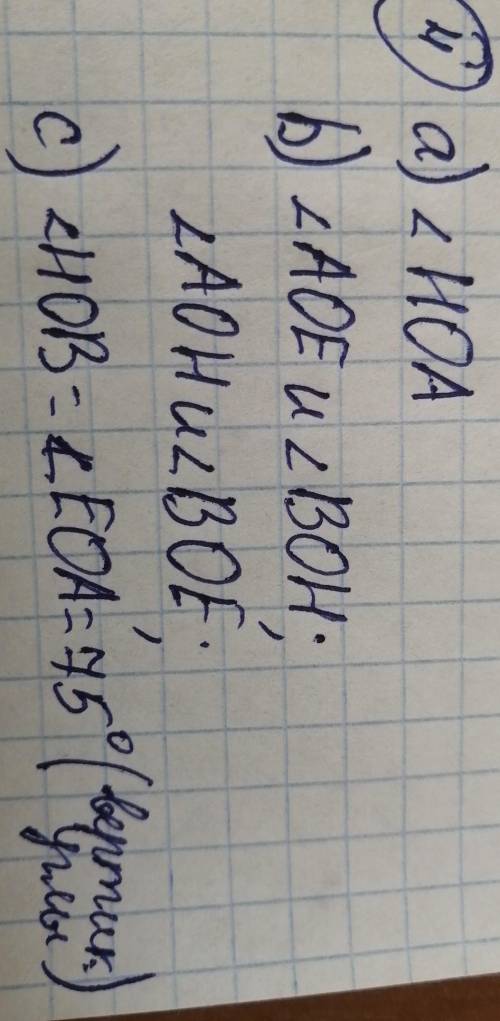 4 a) ∠HOA
b) ∠AOE и ∠BOH;
∠AOH и ∠BOE;
c) ∠HOB = ∠EOA = 75° (вертик.
углы)